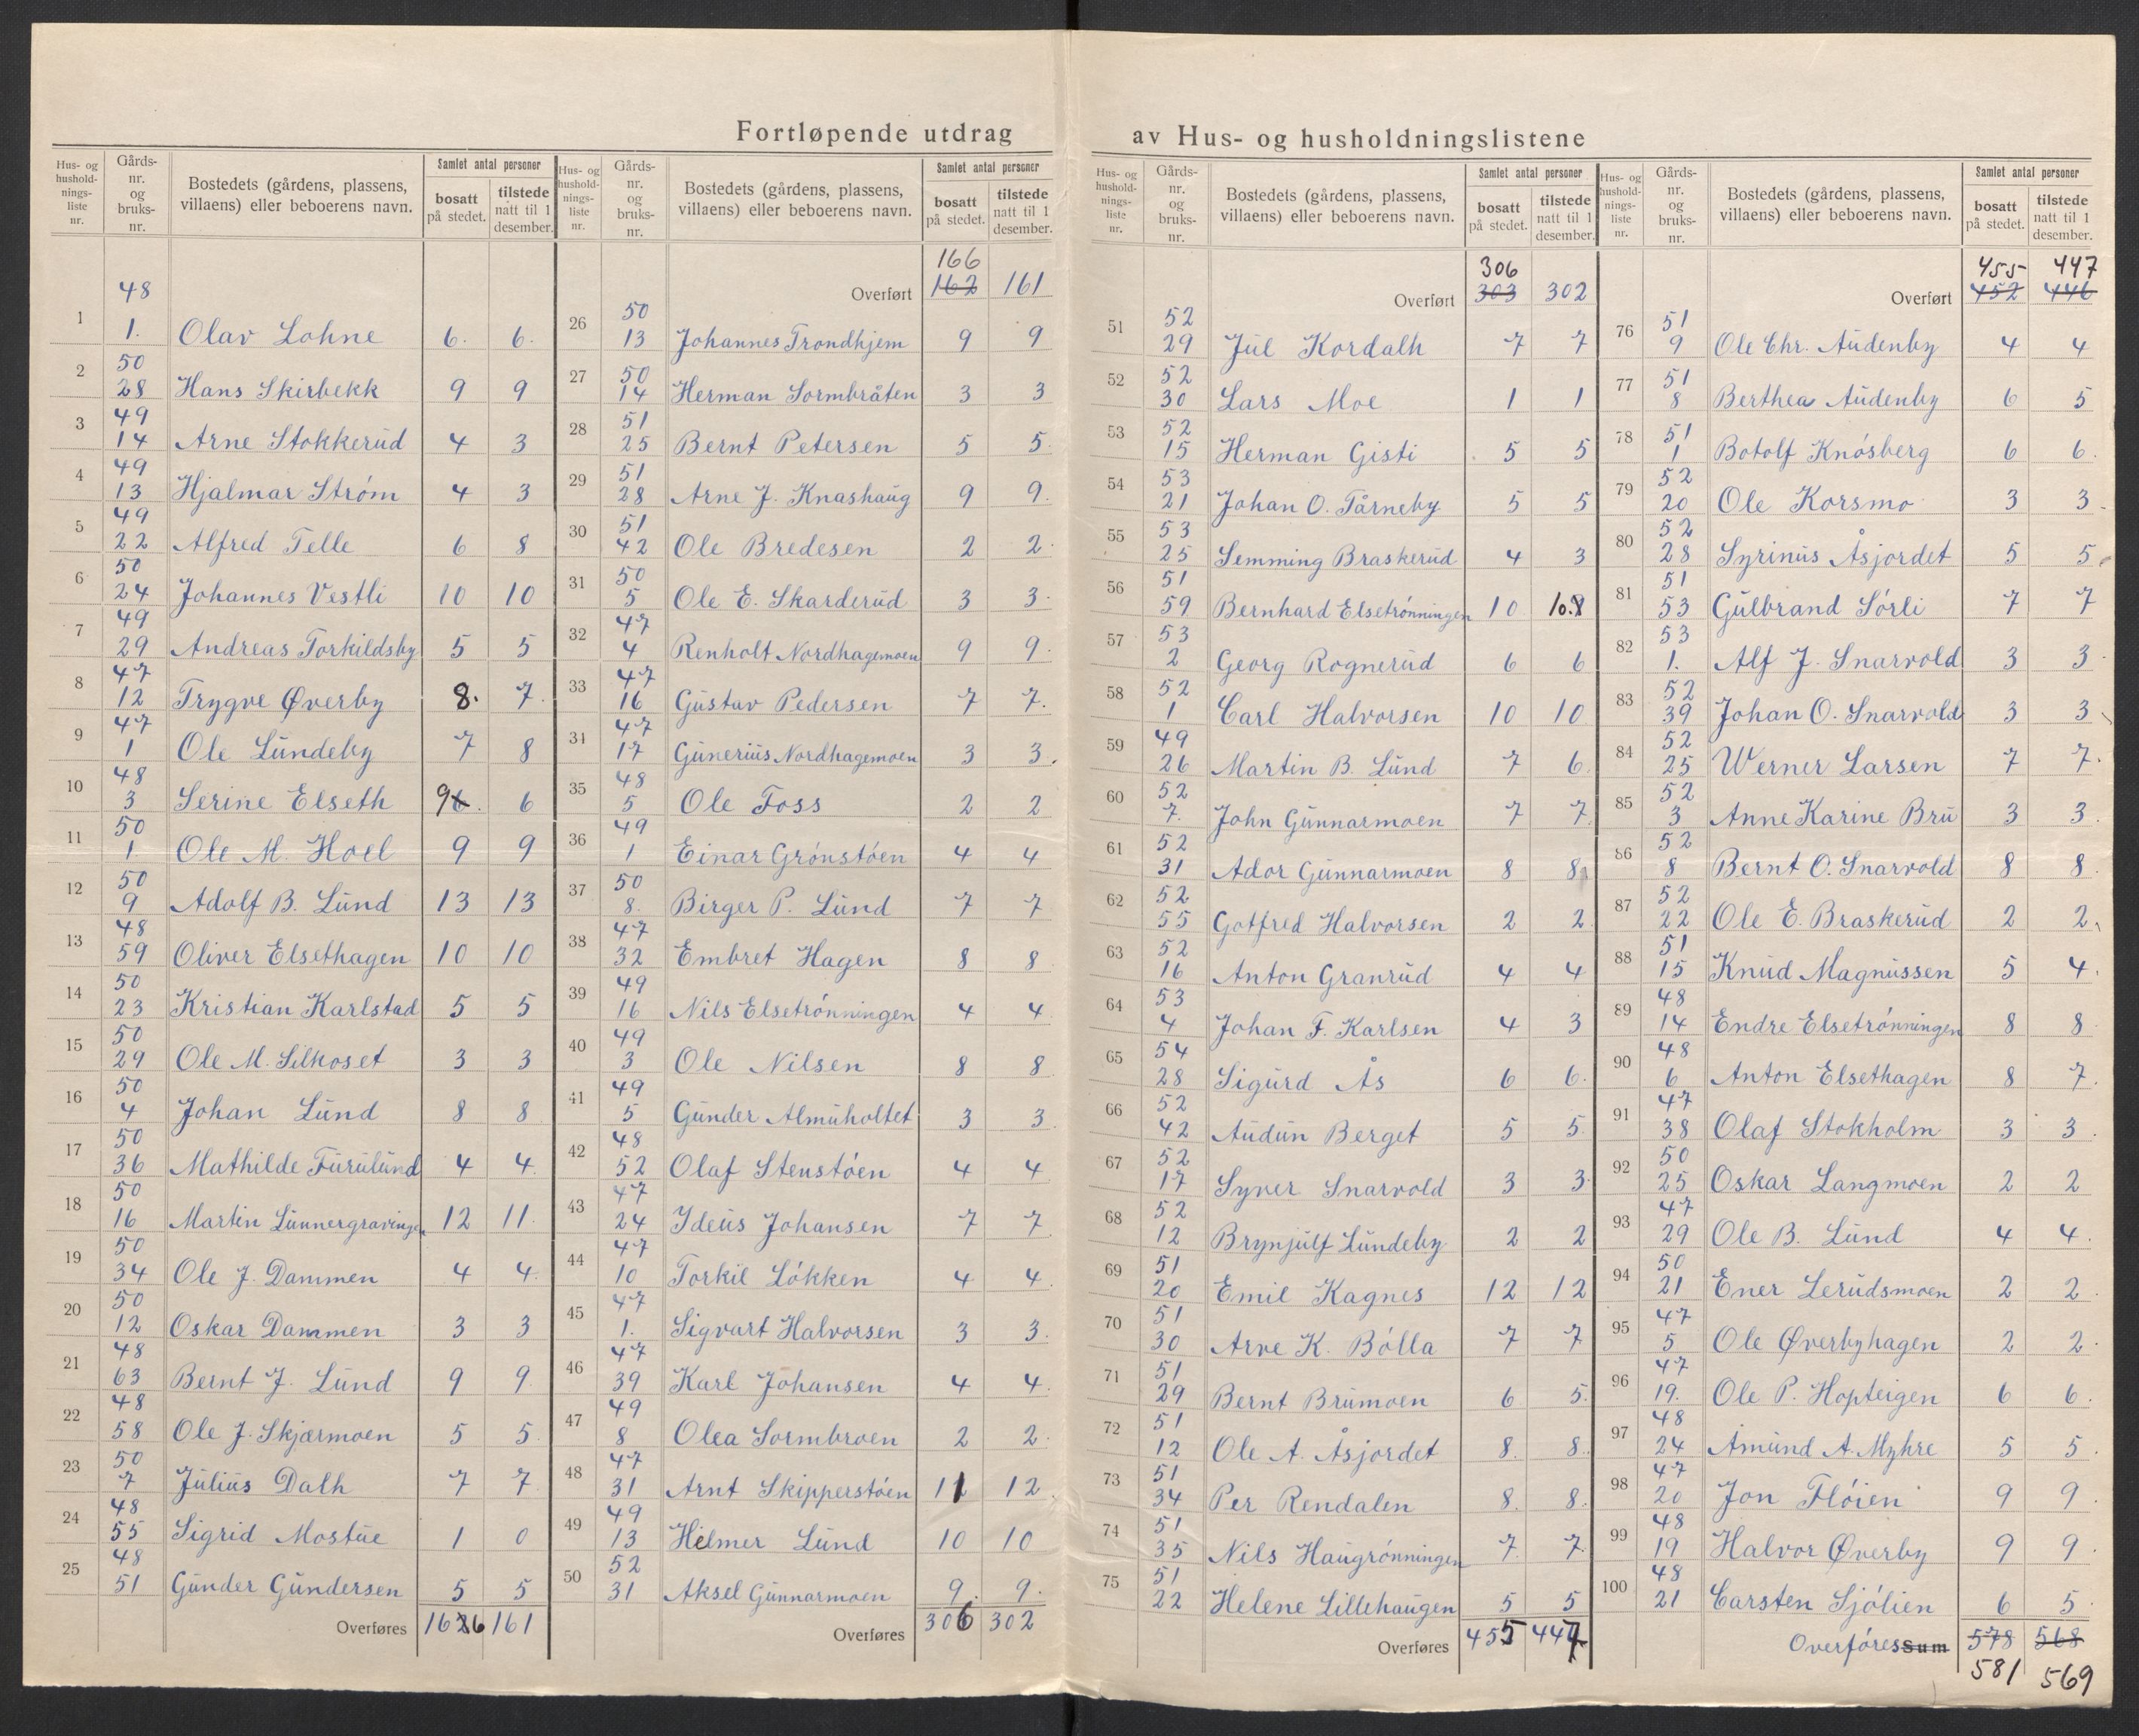 Fortløpende utdrag av Hus- og husholdningslistene
Hus- og husholdnings-liste nr. | Gårds-nr. og bruks-nr. | Bostedets (gårdens, plassens, villaens) eller beboerens navn. | Samlet antal personer bosatt på stedet. | tilstede natt til 1 desember.
1 | 48 1. | Olav Lohne | 6. | 6.
2 | 50 28 | Hans Skirbekk | 9 | 9
3 | 49 14 | Arne Stokkerud | 4 | 3
4 | 49 13 | Hjalmar Strøm | 4 | 3
5 | 49 22 | Alfred Telle | 6 | 8
6 | 50 24 | Johannes Vestli | 10 | 10
7 | 49 29 | Andreas Torkildsby | 5 | 5
8 | 47 12 | Trygve Øverby | 8. | 7.
9 | 47 1 | Ole Lundeby | 7 | 8
10 | 48 3 | Serine Elseth | 96. | 6
11 | 50 1 | Ole M. Hoel | 9 | 9
12 | 50 9 | Adolf B. Lund | 13 | 13
13 | 48 59 | Oliver Elsethagen | 10 | 10
14 | 50 23 | Kristian Karlstad | 5 | 5
15 | 50 29 | Ole M. Silkoset | 3 | 3
16 | 50 4 | Johan Lund | 8 | 8
17 | 50 36 | Mathilde Furulund | 4 | 4
18 | 50 16 | Martin | 12 | 11
19 | 50 34 | Ole J. Dammen | 4 | 4
20 | 50 12 | Oskar Dammen | 3 | 3
21 | 48 63 | Bernt J. Lund | 9 | 9
22 | 48 58 | Ole J. Skjærmoen | 5 | 5
23 | 50 7 | Julius Dalh | 7 | 7
24 | 48 55 | Sigrid Mostue | 1 | 0
25 | 48 51 | Gunder Gundersen | 5 | 5
Overføres | 166 | 161
Hus- og husholdnings-liste nr. | Gårds-nr. og bruks-nr. | Bostedets (gårdens, plassens, villaens) eller beboerens navn. | Samlet antal personer bosatt på stedet. | tilstede natt til 1 desember.
Overført | 166 162 | 161
26 | 50 13 | Johannes Trondhjem | 9 | 9
27 | 50 14 | Herman Sormbråten | 3 | 3
28 | 51 25 | Bernt Petersen | 5 | 5
29 | 51 28 | Arne J. Knashaug | 9 | 9.
30 | 51 42 | Ole Bredesen | 2 | 2
31 | 50 5 | Ole E. Skarderud | 3 | 3
32 | 47 4 | Renholt Nordhagemoen | 9 | 9
33 | 47 16 | Gustav Pedersen | 7 | 7.
34 | 47 17 | Gunerius Nordhagemoen | 3 | 3
35 | 48 5 | Ole Foss | 2 | 2
36 | 49 1 | Einar Grónstóen | 4 | 4
37 | 50 8. | Birger P. Lund | 7 | 7
38 | 47 32 | Embret Hagen | 8 | 8
39 | 49 16 | Nils Elsetrónningen | 4 | 4
40 | 49 3 | Ole Nilsen | 8 | 8
41 | 49 5 | Gunder Almuholtet | 3 | 3
42 | 48 52 | Olaf Stenstóen | 4 | 4
43 | 47 24 | Ydeus Johansen | 7 | 7
44 | 47 10 | Torkil Lókken | 4 | 4
45 | 47 1. | Sigvart Halvorsen | 3 | 3.
46 | 47 39 | Karl Johansen | 4 | 4
47 | 49 8 | Olea Sormbroen | 2 | 2
48 | 47 31 | Arnt Skipperstóen | 11 | 12
49 | 49 13 | Helmer Lund | 10 | 10
50 | 52 31 | Aksel Gunnarmoen | 9. | 9.
Overføres | 306 | 302
Hus- og husholdnings-liste nr. | Gårds-nr. og bruks-nr. | Bostedets (gårdens, plassens, villaens) eller beboerens navn. | Samlet antal personer bosatt på stedet. | tilstede natt til 1 desember.
Overført | 306 303 | 302
51 | 52 29 | Jul Kordalh | 7 | 7
52 | 52 30 | Lars Moe | 1 | 1
53 | 52 15 | Herman Gisti | 5 | 5
54 | 53 21 | Johan O. Tårneby | 5 | 5
55 | 53 25 | Semming Braskerud | 4 | 3
56 | 51 59 | Bernhard Elsetrónningen | 10 | 10.8
57 | 53 2 | Georg Rognerud | 6 | 6
58 | 52 1 | Carl Halvorsen | 10 | 10
59 | 49 26 | Martin B. Lund | 7 | 6
60 | 52 7. | John Gunnarmoen | 7 | 7
61 | 52 31 | Ador Gunnarmoen | 8 | 8
62 | 52 55 | Gotfred Halvorsen | 2 | 2
63 | 52 16 | Anton Granrud | 4 | 4
64 | 53 4 | Johan F. Karlsen | 4 | 3
65 | 54 28 | Sigurd Ås | 6 | 6
66 | 52 42 | Audun Berget | 5 | 5
67 | 52 17 | Syver Snarvold | 3 | 3
68 | 52 12 | Brynjulf Lundeby | 2 | 2
69 | 51 20 | Emil Kagnes | 12 | 12
70 | 51 30 | Arve K. Bólla | 7 | 7
71 | 51 29 | Bernt Brumoen | 6 | 5
72 | 51 12 | Ole A. Åsjordet | 8. | 8.
73 | 51 34 | Per Rendalen | 8. | 8.
74 | 51 35 | Nils Haugrónningen | 7 | 7
75 | 51 22 | Helene Lillehaugen | 5 | 5
Overføres | 455 | 447
Hus- og husholdnings-liste nr. | Gårds-nr. og bruks-nr. | Bostedets (gårdens, plassens, villaens) eller beboerens navn. | Samlet antal personer bosatt på stedet. | tilstede natt til 1 desember.
Overført | 455 452 | 447 446
76 | 51 9 | Ole Chr. Audenby | 4 | 4
77 | 51 8 | Berthea Audenby | 6 | 5
78 | 51 1 | Botolf Knósberg | 6 | 6.
79 | 52 20 | Ole Korsmo | 3 | 3
80 | 52 28 | Syrinus Åsjordet | 5 | 5
81 | 51 53 | Gulbrand Sórli | 7 | 7
82 | 53 1. | Alf J. Snarvold | 3 | 3
83 | 52 39 | Johan O. Snarvold | 3 | 3
84 | 52 25 | Werner Larsen | 7 | 7.
85 | 52 3 | Anne Karine Bru | 3 | 3.
86 | 52 8 | Bernt O. Snarvold | 8 | 8
87 | 52 22 | Ole E. Braskerud | 2 | 2
88 | 51 15 | Knud Magnussen | 5 | 4.
89 | 48 14 | Endre Elsetrónningen | 8 | 8
90 | 48 6 | Anton Elsethagen | 8 | 7.
91 | 47 38 | Olaf Stokholm | 3 | 3
92 | 50 25 | Oskar Langmoen | 2 | 2
93 | 47 29 | Ole B. Lund | 4 | 4.
94 | 50 21 | Ener Lerudsmoen | 2 | 2
95 | 47 5 | Ole Øverbyhagen | 2 | 2
96 | 47 19. | Ole P. Hopteigen | 6 | 6.
97 | 48 24 | Amund A. Myhre | 5 | 5
98 | 47 20 | Jon Flóien | 9 | 9
99 | 48 19 | Halvor Øverby | 9 | 9
100 | 48 21 | Carsten Sjólien | 6 | 5
Overføres Sum | 578 | 568
581 | 569